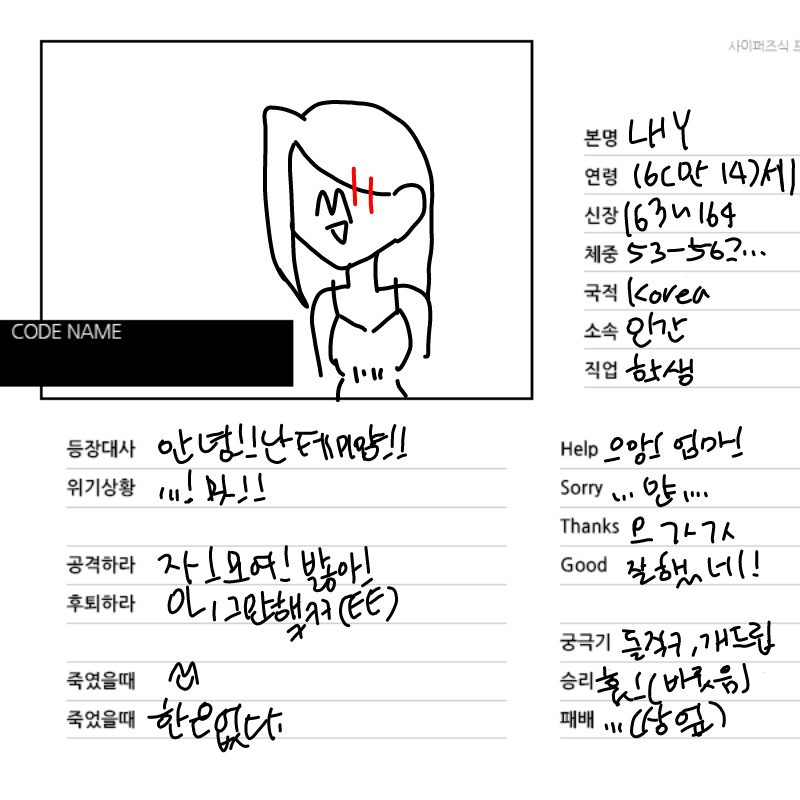 사이퍼즈식 프
본명 LHY
연령 16(만 14)세
신장 163~164
체중 53-56?...
국적 Korea
소속 인간
직업 학생
CODE NAME
등장대사 안녕!!난 테미얌!!
위기상황 ...! 마!!
공격하라 자! 모여! 밟아!
후퇴하라 아니 그만해
죽였을때
죽었을때 한은 없다.
Help 으앙! 엄마!
Sorry ... 먄....
Thanks ㅇㅋㄱㅅ
Good 잘했네!
궁극기 돌직구, 개드립
승리 훗!(바웃음)
패배 ...(상엎)